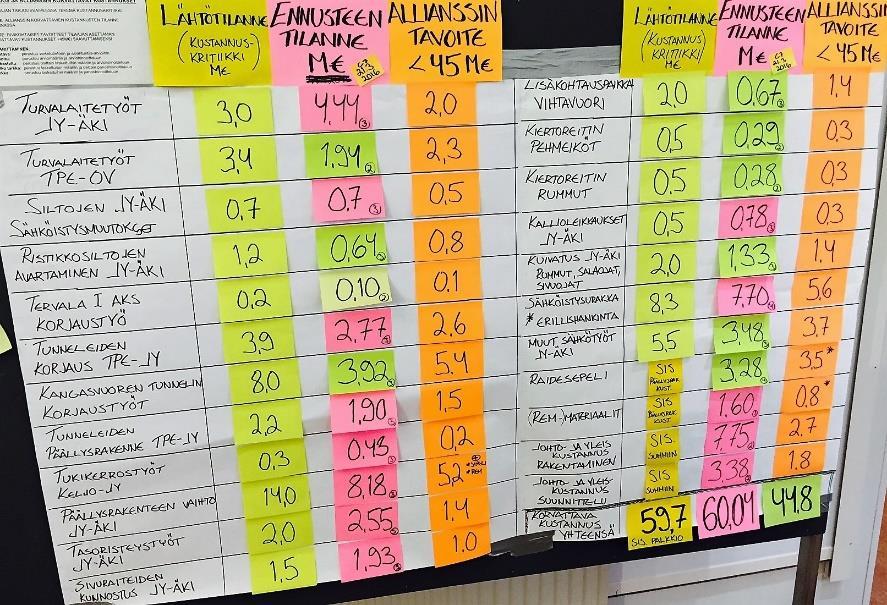 LÄHTÖTILANNE
(KUSTANNUS-
KRITIIKKI)
M€
ENNUSTEEN
TILANNE
M€
2016
ALLIANSSIN
TAVOITE
< 45 M€
TURVALAITETYÖT
JY-ÄKI
3,0
4,44
2,0
TURVALAITETYÖT
TPE-OV
3,4
1,94
2,3
SILTOJEN JY-ÄKI
SÄHKÖISTYSMUUTOKSET
0,7
0,7
0,5
RISTIKKOSILTOJEN
AVARTAMINEN JY-ÄKI
1,2
0,64
0,8
TERVALA I AKS
KORJAUSTYÖ
0,2
0,10
0,1
TUNNELEIDEN
KORJAUS TPE-JY
3,9
2,77
2,6
KANGASVUOREN TUNNELIN
KORJAUSTYÖT
8,0
3,92
5,4
TUNNELEIDEN
PÄÄLLYSRAKENNE TPE-JY
2,2
1,90
1,5
TUKIKERROSTYÖT
KELJO-JY
0,3
0,43
0,2
PÄÄLLYSRAKENTEEN VAIHTO
JY-ÄKI
14,0
8,18
5,2
TASORISTEYSTYÖT
JY-ÄKI
2,0
2,55
1,4
SIVURAITEIDEN
KUNNOSTUS JY-ÄKI
1,5
1,93
1.0
LÄHTÖTILANNE
(KUSTANNUS)
KRITIIKKI
M€
ENNUSTEEN
TILANNE
M€
2016
ALLIANSSIN
TAVOITE
< 45 M€
LISÄKOHTAUSPAIKKA
VIHTAVUORI
2,0
0,67
1,4
KIERTOREITIN
PEHMEIKÖT
0,5
0,29
0,3
KIERTOREITIN
RUMMUT
0,5
0,28
0,3
KALLIOLEIKKAUKSET
JY-ÄKI
0,5
0,78
0,3
KUIVATUS JY-ÄKI
RUMMUT, SALAOJAT,
SIVUOJAT
2,0
1,33
1,4
SÄHKÖISTYSURAKKA
* ERILLISHANKINTA
8,3
7,70
5,6
MUUT SÄHKÖTYÖT
JY-ÄKI
5,5
3,48
3,7
RAIDESEPELI
SIS
PÄÄLLYSRAK
KUST
3,28
3,5*
(REM-)MATERIAALIT
SIS
PÄÄLLYSRAK
KUST
1,60
0,8*
JOHTO- JA YLEIS
KUSTANNUS
RAKENTAMINEN
SIS.
SUMMIIN
7,75
2,7
JOHTO- JA YLEIS-
KUSTANNUS
SUUNNITTELU
SIS
SUMMIIN
3,38
1.8
KORVATTAVA
KUSTANNUS
YHTEENSÄ
59,7
SIS. PALKKIO
60,04
44,8